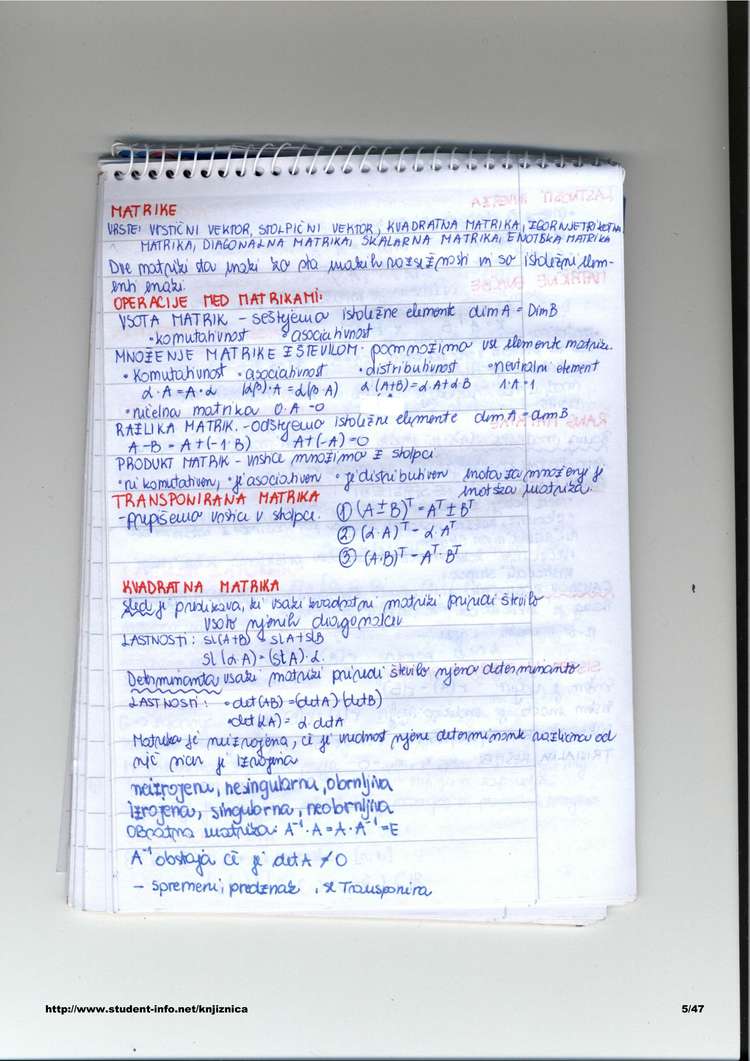 MATRIKE
VRSTE: VRSTIČNI VEKTOR, STOLPIČNI VEKTOR, KVADRATNA MATRIKA, ZGORNJETRIKOTNA
MATRIKA, DIAGONALNA MATRIKA, SKALARNA MATRIKA, ENOTSKA MATRIKA
Dve matriki sta enaki če sta enakih razsežnosti in so istoležni elem-
enti enaki.
OPERACIJE MED MATRIKAMI:
VSOTA MATRIK - seštejemo istoležne elemente dim A = Dim B
• komutativnost • asociativnost
MNOŽENJE MATRIKE Z ŠTEVILOM: pomnožimo vse elemente matrike.
• komutativnost • asociativnost • distributivnost • nevtralni element
α·A = A·α (αβ)·A = α(β·A) α(A+B) = α·A+αB 1·A=1
• ničelna matrika 0·A=0
RAZLIKA MATRIK. - odštejemo istoležne elemente dim A = dim B
A-B = A+(-1·B) A+(-A)=0
PRODUKT MATRIK - vrstice množimo z stolpci
• ni komutativen, • je asociativen • je distributiven enota za množenje je
enotska matrika.
TRANSPONIRANA MATRIKA
- prepišemo vrstice v stolpce. ① (A±B)ᵀ = Aᵀ ± Bᵀ
② (α·A)ᵀ = α·Aᵀ
③ (A·B)ᵀ = Aᵀ·Bᵀ
KVADRATNA MATRIKA
Sled je preslikava, ki vsaki kvadratni matriki priredi število
vsoto njenih diagonalcev
LASTNOSTI: sl(A+B) = slA+slB
sl(α·A) = (slA)·α.
Determinanta vsaki matriki priredi število njeno determinanto
LASTNOSTI: • det(AB) = (detA)·(detB)
• det(αA) = α·detA
Matrika je neizrojena, če je vrednost njene determinante različna od
nič sicer je izrojena
neizrojena, nesingularna, obrnljiva
izrojena, singularna, neobrnljiva
Obratna matrika: A⁻¹·A = A·A⁻¹ = E
A⁻¹ obstaja če je detA ≠ 0
- spremeni predznak, se Transponira
http://www.student-info.net/knjiznica
5/47